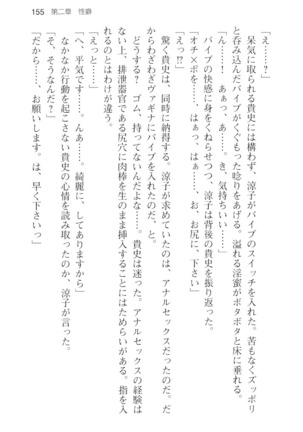 155　第二章　性癖
「え……？」
呆気に取られる貴史には構わず、涼子がバイブのスイッチを入れた。苦もなくズッポリ
と呑み込んだバイブがくぐもった唸りをあげる。溢れる淫蜜がボタボタと床に垂れる。
「ん……！　あぁっ、あぅ……き、気持ちいい……」
バイブの快感に身をくねらせつつ、涼子は背後の貴史を振り返った。
「オチ×ポを……、はぁっ、はぁっ……お、お尻に、下さい」
「えっ!?」
驚く貴史は、同時に納得する。涼子が求めていたのは、アナルセックスだったのだ。だ
からわざわざヴァギナにバイブを入れたのだ、と。
どうする？　ゴム、持ってないんだよな……。貴史は迷った。アナルセックスの経験は
ない上、排泄器官である尻穴に肉棒を生のまま挿入することにはためらいがある。指を入
れるのとはわけが違う。
「えっと……」
「へ、平気です……んっ……。綺麗に、してありますから」
なかなか行動を起こさない貴史の心情を読み取ったのか、涼子が言った。
「そ、そうなんだ」
「だから……、お願いします。は、早く下さいっ」